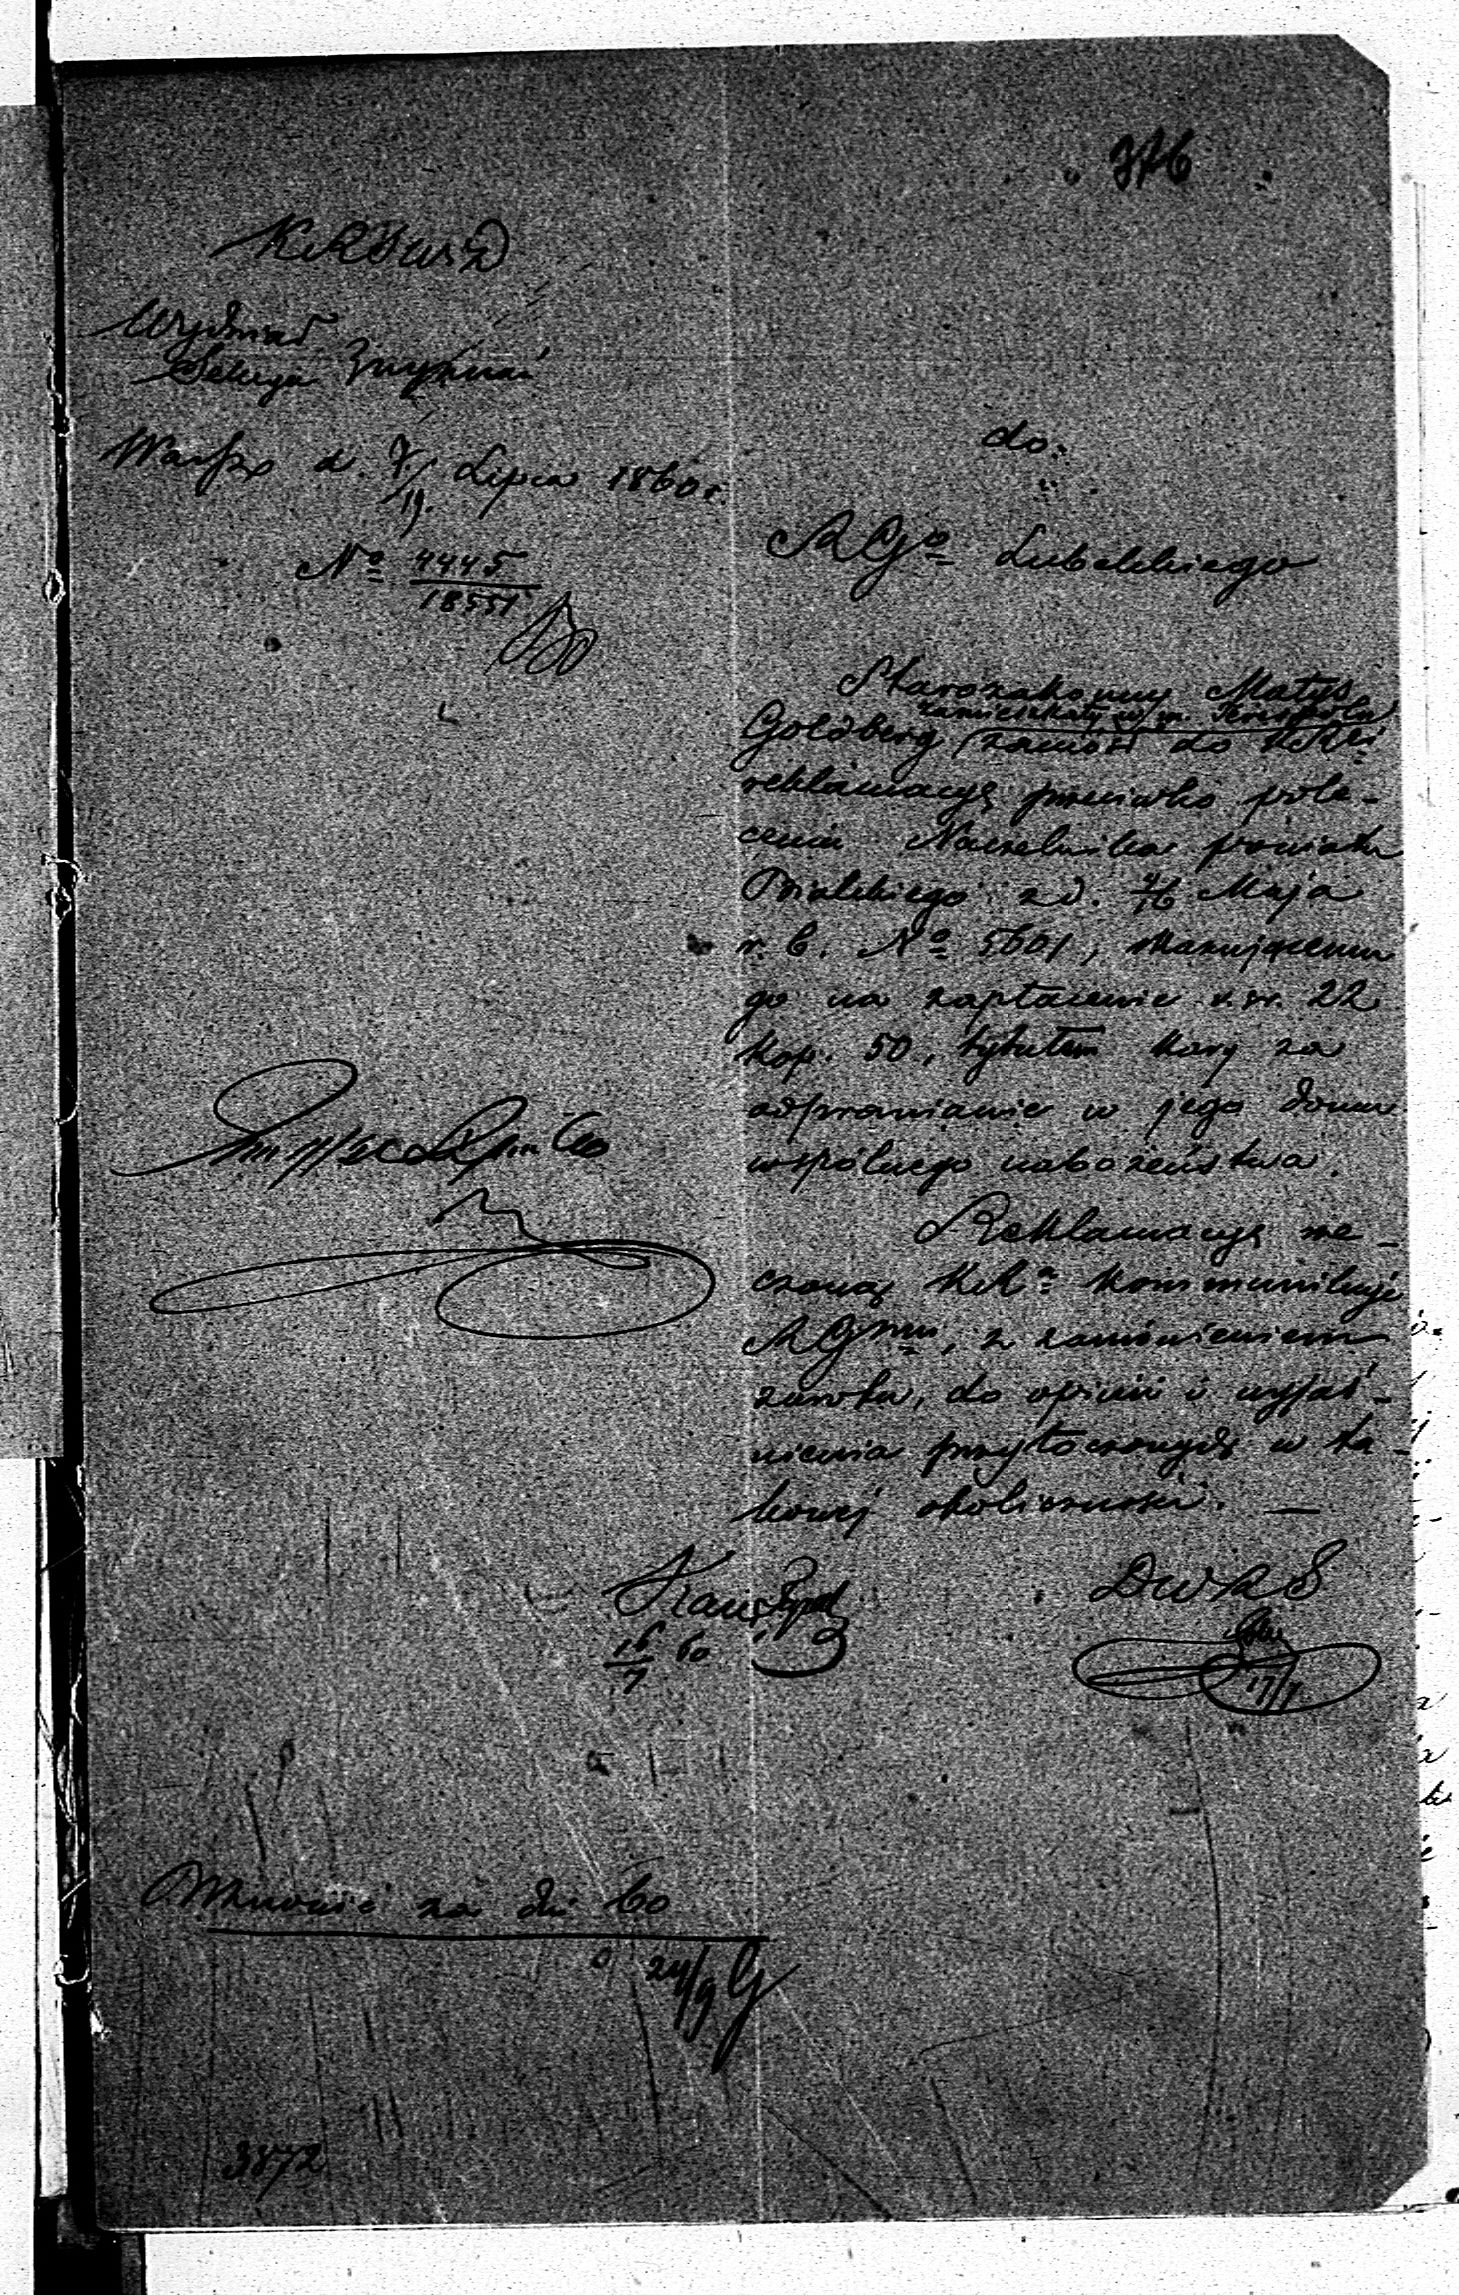 376
KRSWiD
Wydział
Sekcya
Warsz. d. 7/19. Lipca 1860 r.
No 4445/18551
do:
RGo Lubelskiego
Starozakonny Matys
zamieszkały w m.
Goldberg zaniósł do KRi
reklamacyą przeciwko pole-
ceniu Naczelnika powiatu
Bialskiego z d. 4/16 Maja
r. b. No 5601, skazującemu
go na zapłacenie r. sr. 22
kop. 50, tytułem kary za
odprawianie w jego domu
wspólnego nabożeństwa.
Reklamacyą rze-
czoną KRa kommunikuje
RGmu, z zamówieniem
zwrotu, do opinii i wyjaś-
nienia przytoczonych w ta-
kowej okoliczności. —
16/7 60
DWRS
17/7
Wznowić za dni 60
24/9
3872